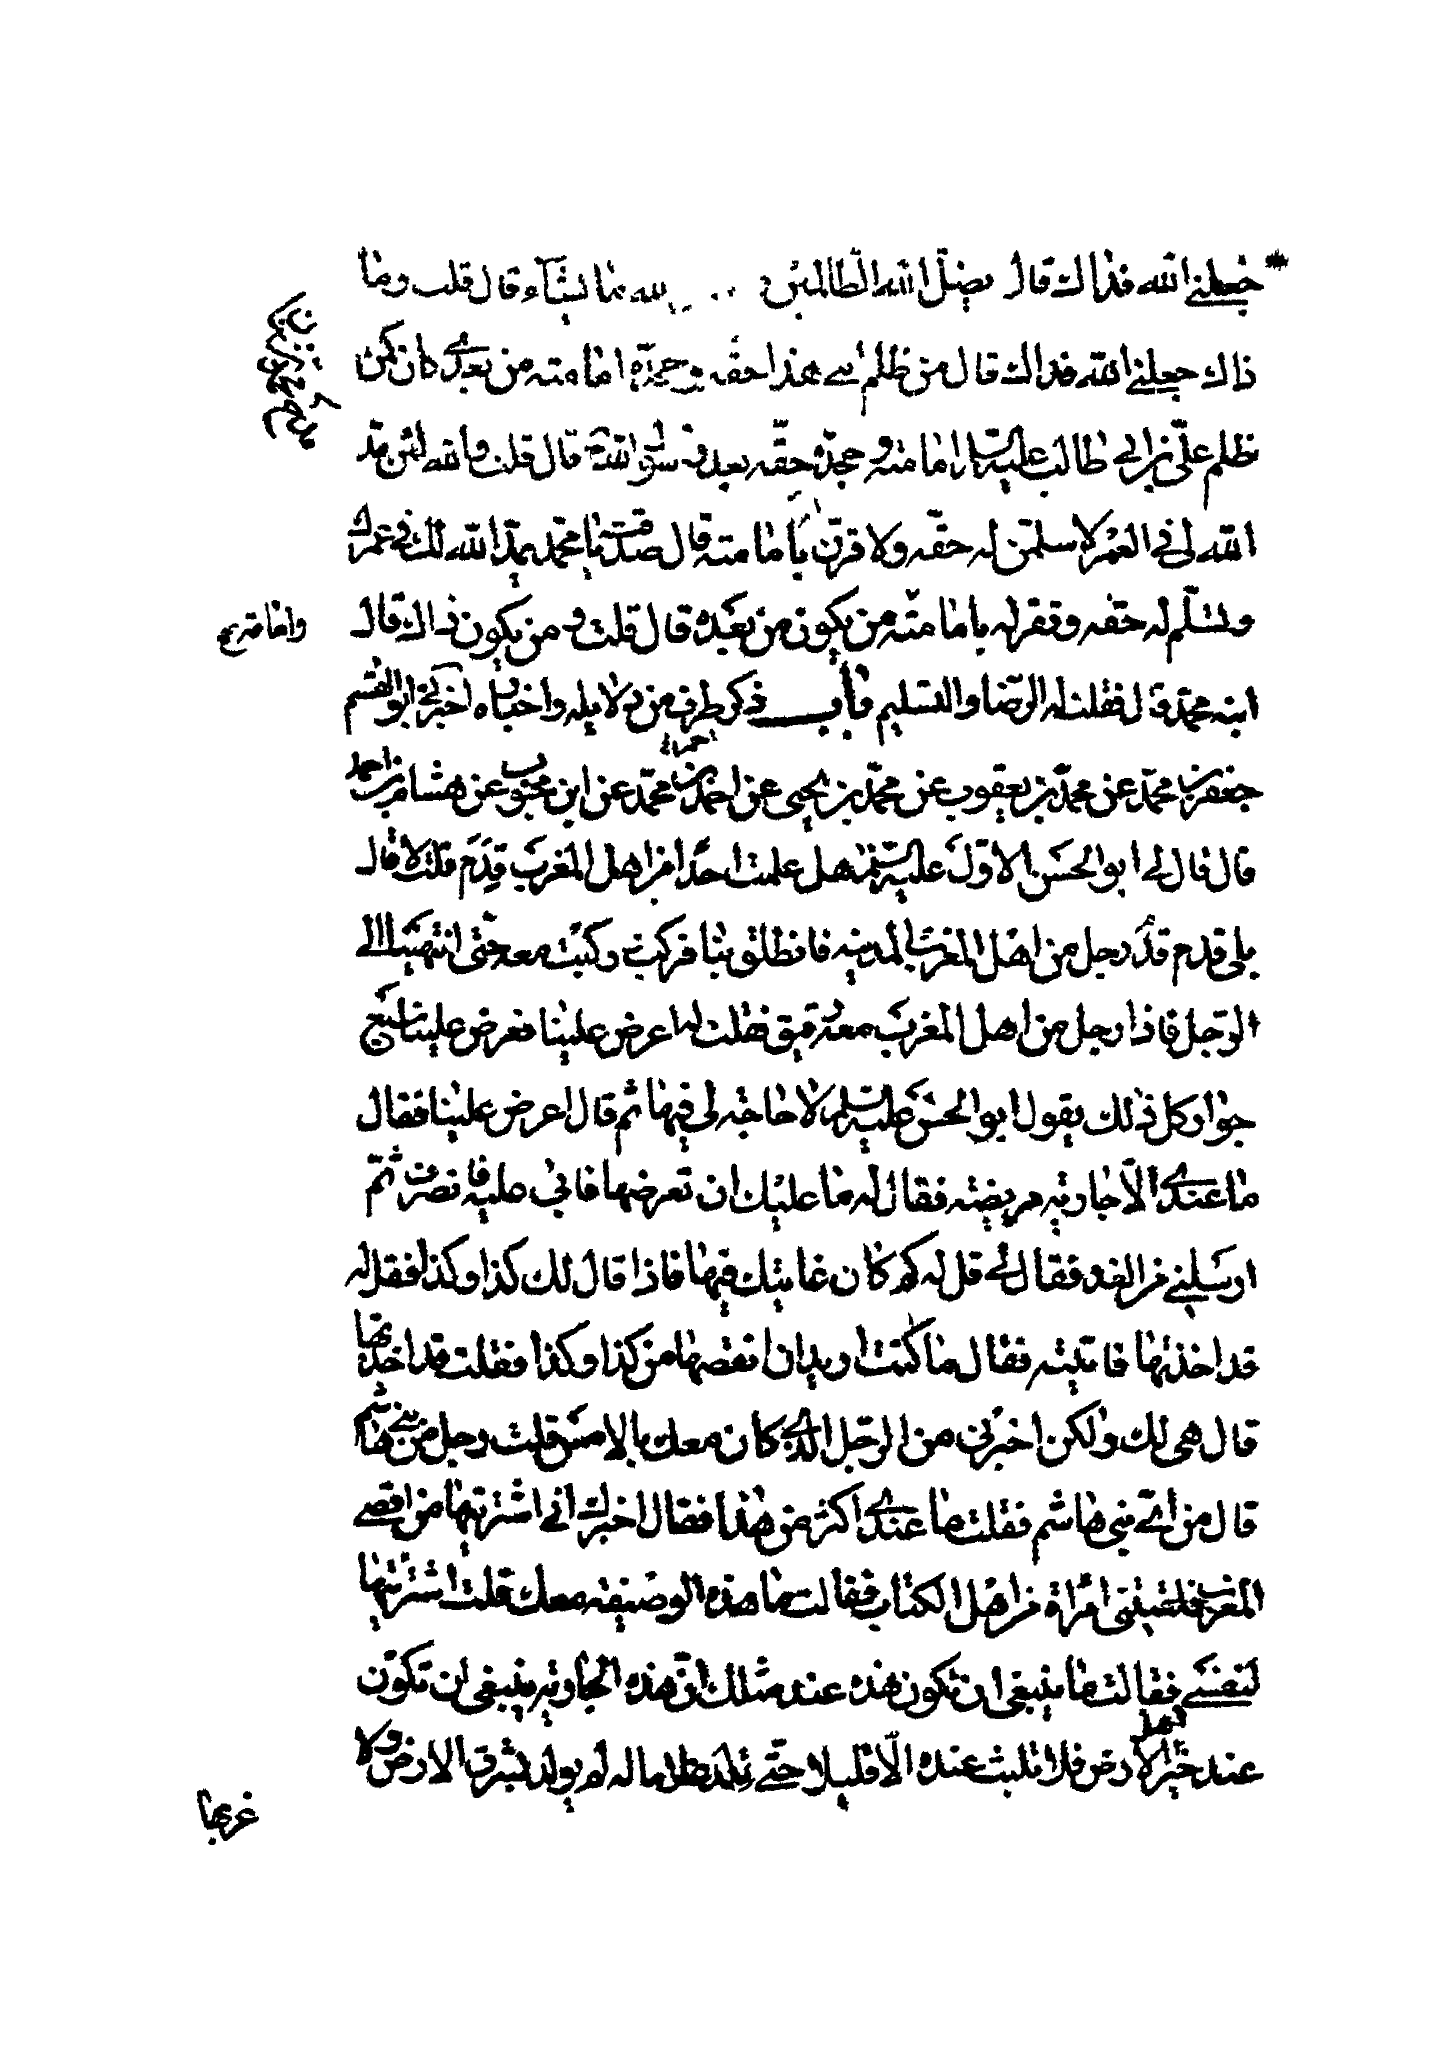 جعلني الله فداك قال يضل الله الظالمين و .. الله ما يشاء قال قلت وما
ذاك جعلني الله فداك قال من ظلم ابني هذا حقه وجحده امامته من بعدي كان كمن
ظلم علي بن ابي طالب عليه السلام امامته وجحده حقه بعد رسول الله قال قلت والله لئن مد
الله لي في العمر لاسلمن له حقه ولاقرن بامامته قال صدقت يا محمد يمد الله لك في عمرك
وتسلم له حقه وتقر له بامامته من يكون من بعده قال قلت ومن يكون ذاك قال
ابنه محمد قال فقلت له الرضا والتسليم باب ذكر طرف من دلايله واخباره اخبرني ابو القسم
جعفر بن محمد عن محمد بن يعقوب عن محمد بن يحيى عن احمد بن محمد عن ابن محبوب عن هشام بن احمد
قال قال لي ابو الحسن الاول عليه السلم هل علمت احدا من اهل المغرب قدم قلت لا قال
بلى قدم قد رجل من اهل المغرب المدينه فانطلق بنا فركب وركبت معه حتى انتهينا الى
الرجل فاذا رجل من اهل المغرب معه رقيق فقلت له اعرض علينا فعرض علينا سبع
جوار كل ذلك يقول ابو الحسن عليه السلم لا حاجه لي فيها ثم قال اعرض علينا فقال
ما عندي الا جاريه مريضه فقال له ما عليك ان تعرضها فابى عليه فانصرف ثم
ارسلني من الغد فقال لي قل له كم كان غايتك فيها فاذا قال لك كذا وكذا فقل له
قد اخذتها فاتيته فقال ما كنت اريد ان انقصها من كذا وكذا فقلت قد اخذتها
قال هي لك ولكن اخبرني من الرجل الذي كان معك بالامس قلت رجل من بني هاشم
قال من اي بني هاشم فقلت ما عندي اكثر من هذا فقال اخبرك اني اشتريتها من اقصى
المغرب فلقيتني امراة من اهل الكتاب فقالت ما هذه الوصيفه معك قلت اشتريتها
لنفسي فقالت ما ينبغي ان تكون هذه عند مثلك ان هذه الجاريه ينبغي ان تكون
عند خير اهل الارض فلا تلبث عنده الا قليلا حتى تلد غلاما له لم يولد بشرق الارض ولا
غربها